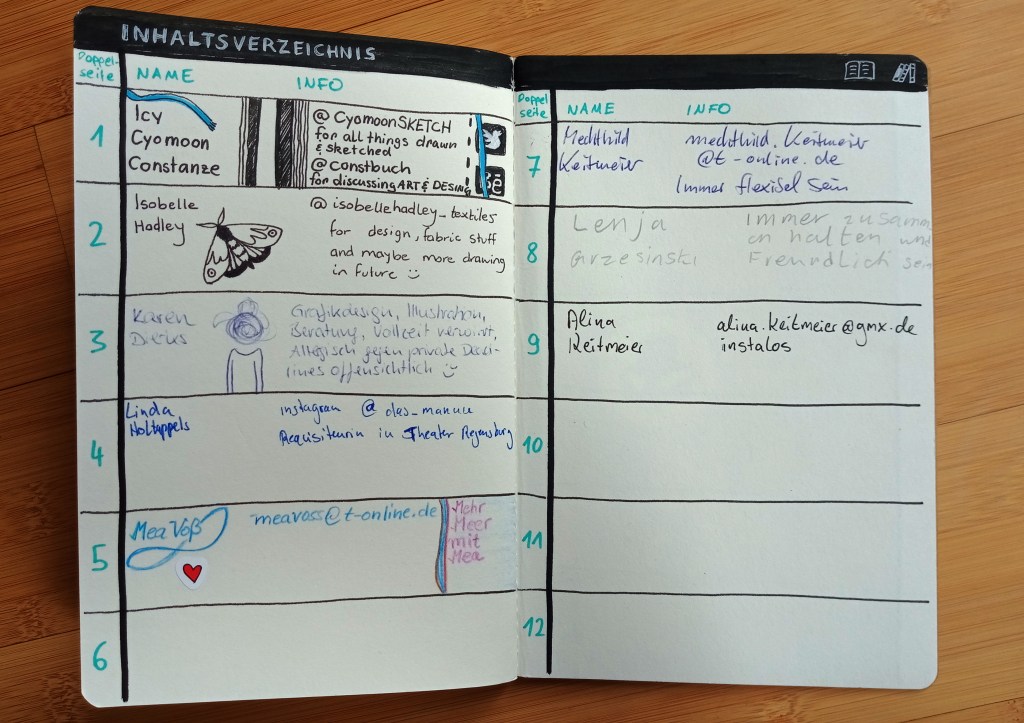 INHALTSVERZEICHNIS
Doppel-
seite
NAME
INFO
1
Icy
Cyomoon
Constanze
@ CyomoonSKETCH
for all things drawn
& sketched
@constbuch
for discussing ART & DESING
Bē
2
Isobelle
Hadley
@ isobellehadley_textiles
for design, fabric stuff
and maybe more drawing
in future
3
Karen
Grafikdesign, Illustration,
Beratung, Vollzeit verwirrt,
Allergisch gegen private
lines offensichtlich
4
Linda
Holtappels
instagram @
Requisiteurin in Theater Regensburg
5
Mea Voß
meavoss@t-online.de
Mehr
Meer
mit
Mea
6
Doppel
seite
NAME
INFO
7
Mechthild
Keitmeier
mechthild.Keitmeier
@t-online.de
Immer flexibel sein
8
Lenja
Grzesinski
Immer zusamm
en halten und
Freundlich sein
9
Alina
Keitmeier
alina.keitmeier@gmx.de
instalos
10
11
12